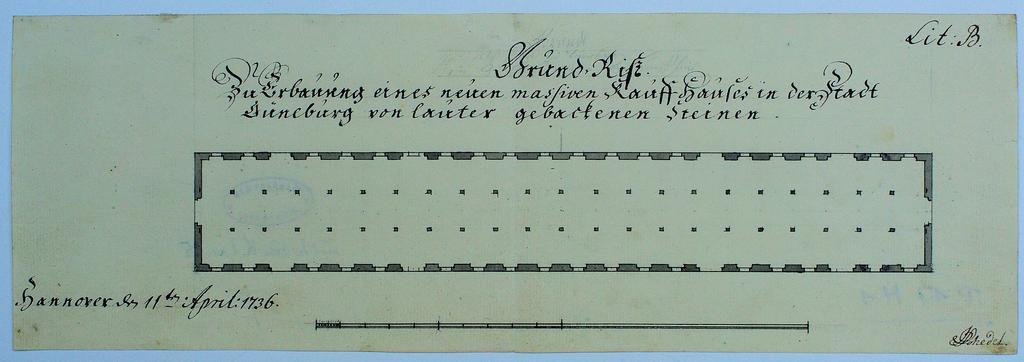 Lit: B.
Grund-Riß.
Zu Erbauung eines neuen massiven Kauff-Hauses in der Stadt
Lüneburg von lauter gebackenen Steinen.
Hannover den 11ten April: 1736.